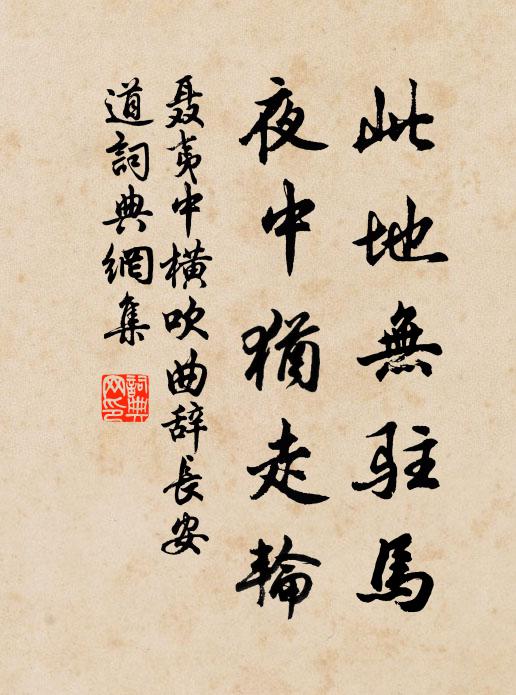 此地無駐馬
夜中猶走輪
聂夷中橫吹曲辞長安
道詞典網集
詞典
网印